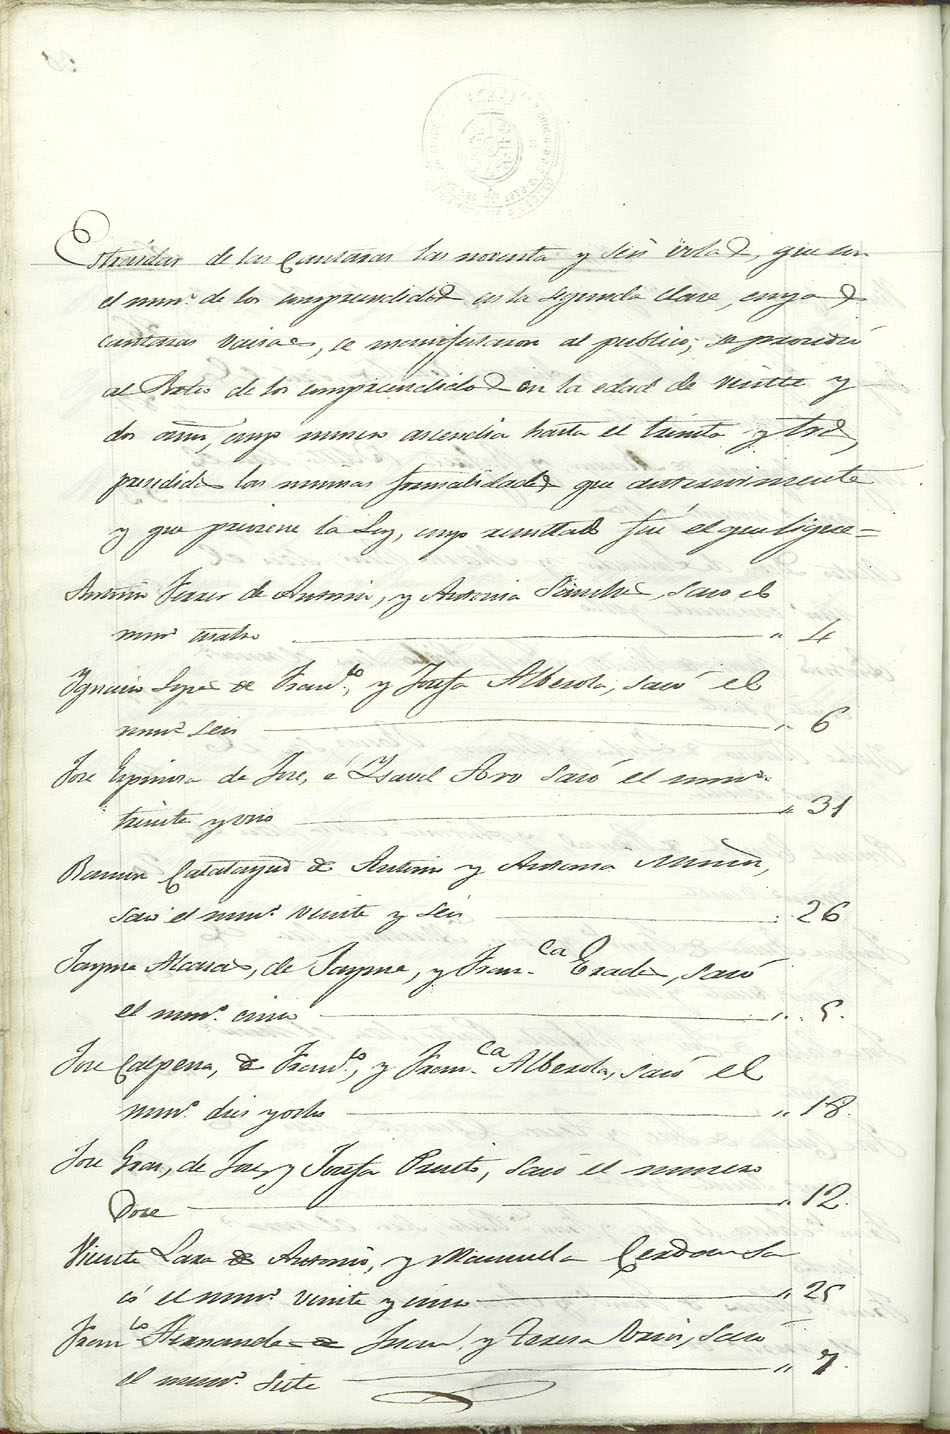 Extraidas de los Cantaros las noventa y seis volas, que son
el num.º de los comprendidos en la segunda clase, cuyos
cantaros vacios, se manifestaron al publico; se procedió
al Sorteo de los comprendidos en la edad de veinte y
dos años, cuyo numero ascendia hasta el treinta y tres,
precedidas las mismas formalidades que anteriormente
y que previene la Ley, cuyo resultado fué el que sigue=
Antonio Ferrer de Antonio, y Antonia Sanchez, saco el
num.º cuatro " 4
Ygnacio Lopez de Fran.co, y Josefa Alberola, sacó el
num.º seis " 6
Jose Espinosa de Jose, é Ysavel Aro sacó el num.º
treinta y uno " 31
Ramon Calatayud de Antonio y Antonia
sacó el num.º veinte y seis 26
Jayme Alcaraz, de Jayme, y Fran.ca Erades, sacó
el num.º cinco " 5.
Jose Calpena, de Fran.co, y Fran.ca Alberola, sacó el
num.º dies y ocho " 18.
Jose Grau, de Jose, y Josefa sacó el numero
Doce " 12.
Vicente Lara de Antonio, y Manuela Cerdan sa
có el num.º veinte y cinco " 25
Fran.co Hernandez de Juan, y Teresa sacó
el num.º siete " 7.